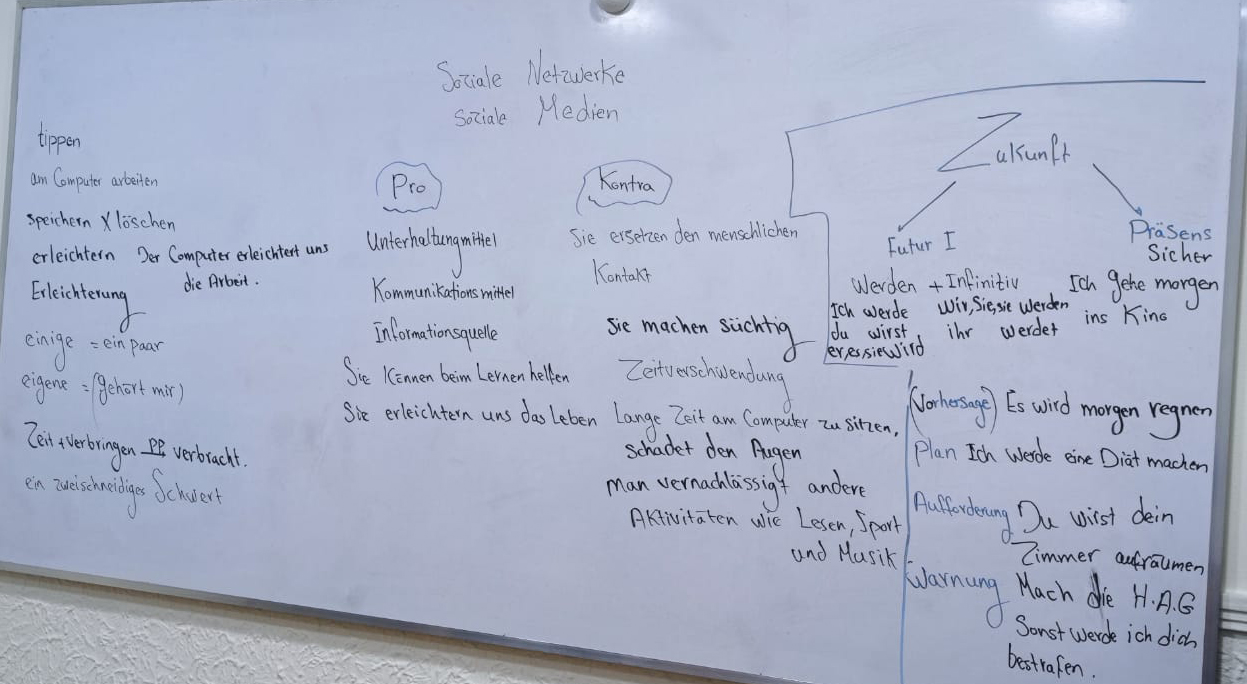 Soziale Netzwerke
Soziale Medien
tippen
am Computer arbeiten
speichern X löschen
erleichtern Der Computer erleichtert uns
die Arbeit.
Erleichterung
einige = ein paar
eigene = (gehört mir)
Zeit + verbringen PP verbracht.
ein zweischneidiges Schwert
Pro
Unterhaltungmittel
Kommunikationsmittel
Informationsquelle
Sie können beim Lernen helfen
Sie erleichtern uns das Leben
Kontra
Sie ersetzen den menschlichen
Kontakt
Sie machen süchtig
Zeitverschwendung
Lange Zeit am Computer zu sitzen,
schadet den Augen
man vernachlässigt andere
Aktivitäten wie Lesen, Sport
und Musik
Zukunft
Futur I
Werden + Infinitiv
Ich werde Wir, Sie, sie werden
du wirst ihr werdet
er, es, sie wird
Präsens
Sicher
Ich gehe morgen
ins Kino
(Vorhersage) Es wird morgen regnen
Plan Ich werde eine Diät machen
Aufforderung Du wirst dein
Zimmer aufräumen
Warnung Mach die H.A.G
Sonst werde ich dich
bestrafen.